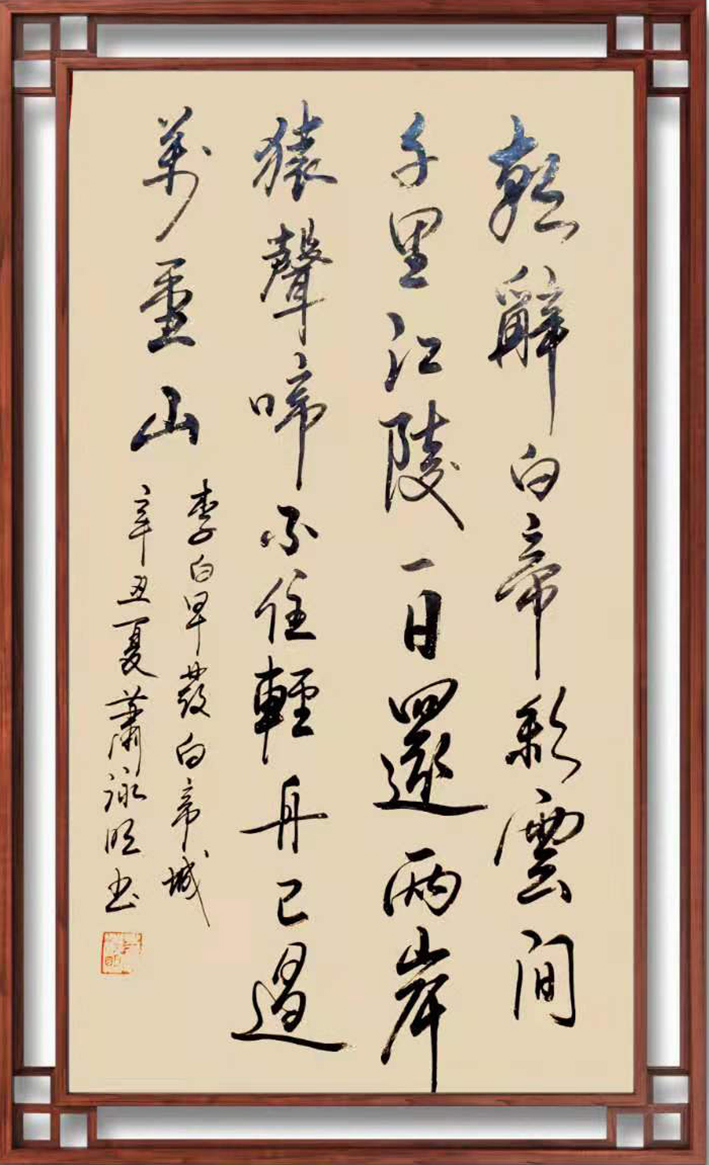 朝辭白帝彩雲間
千里江陵一日還兩岸
猿聲啼不住輕舟已過
萬重山
李白早發白帝城
辛丑夏蕭詠旺书